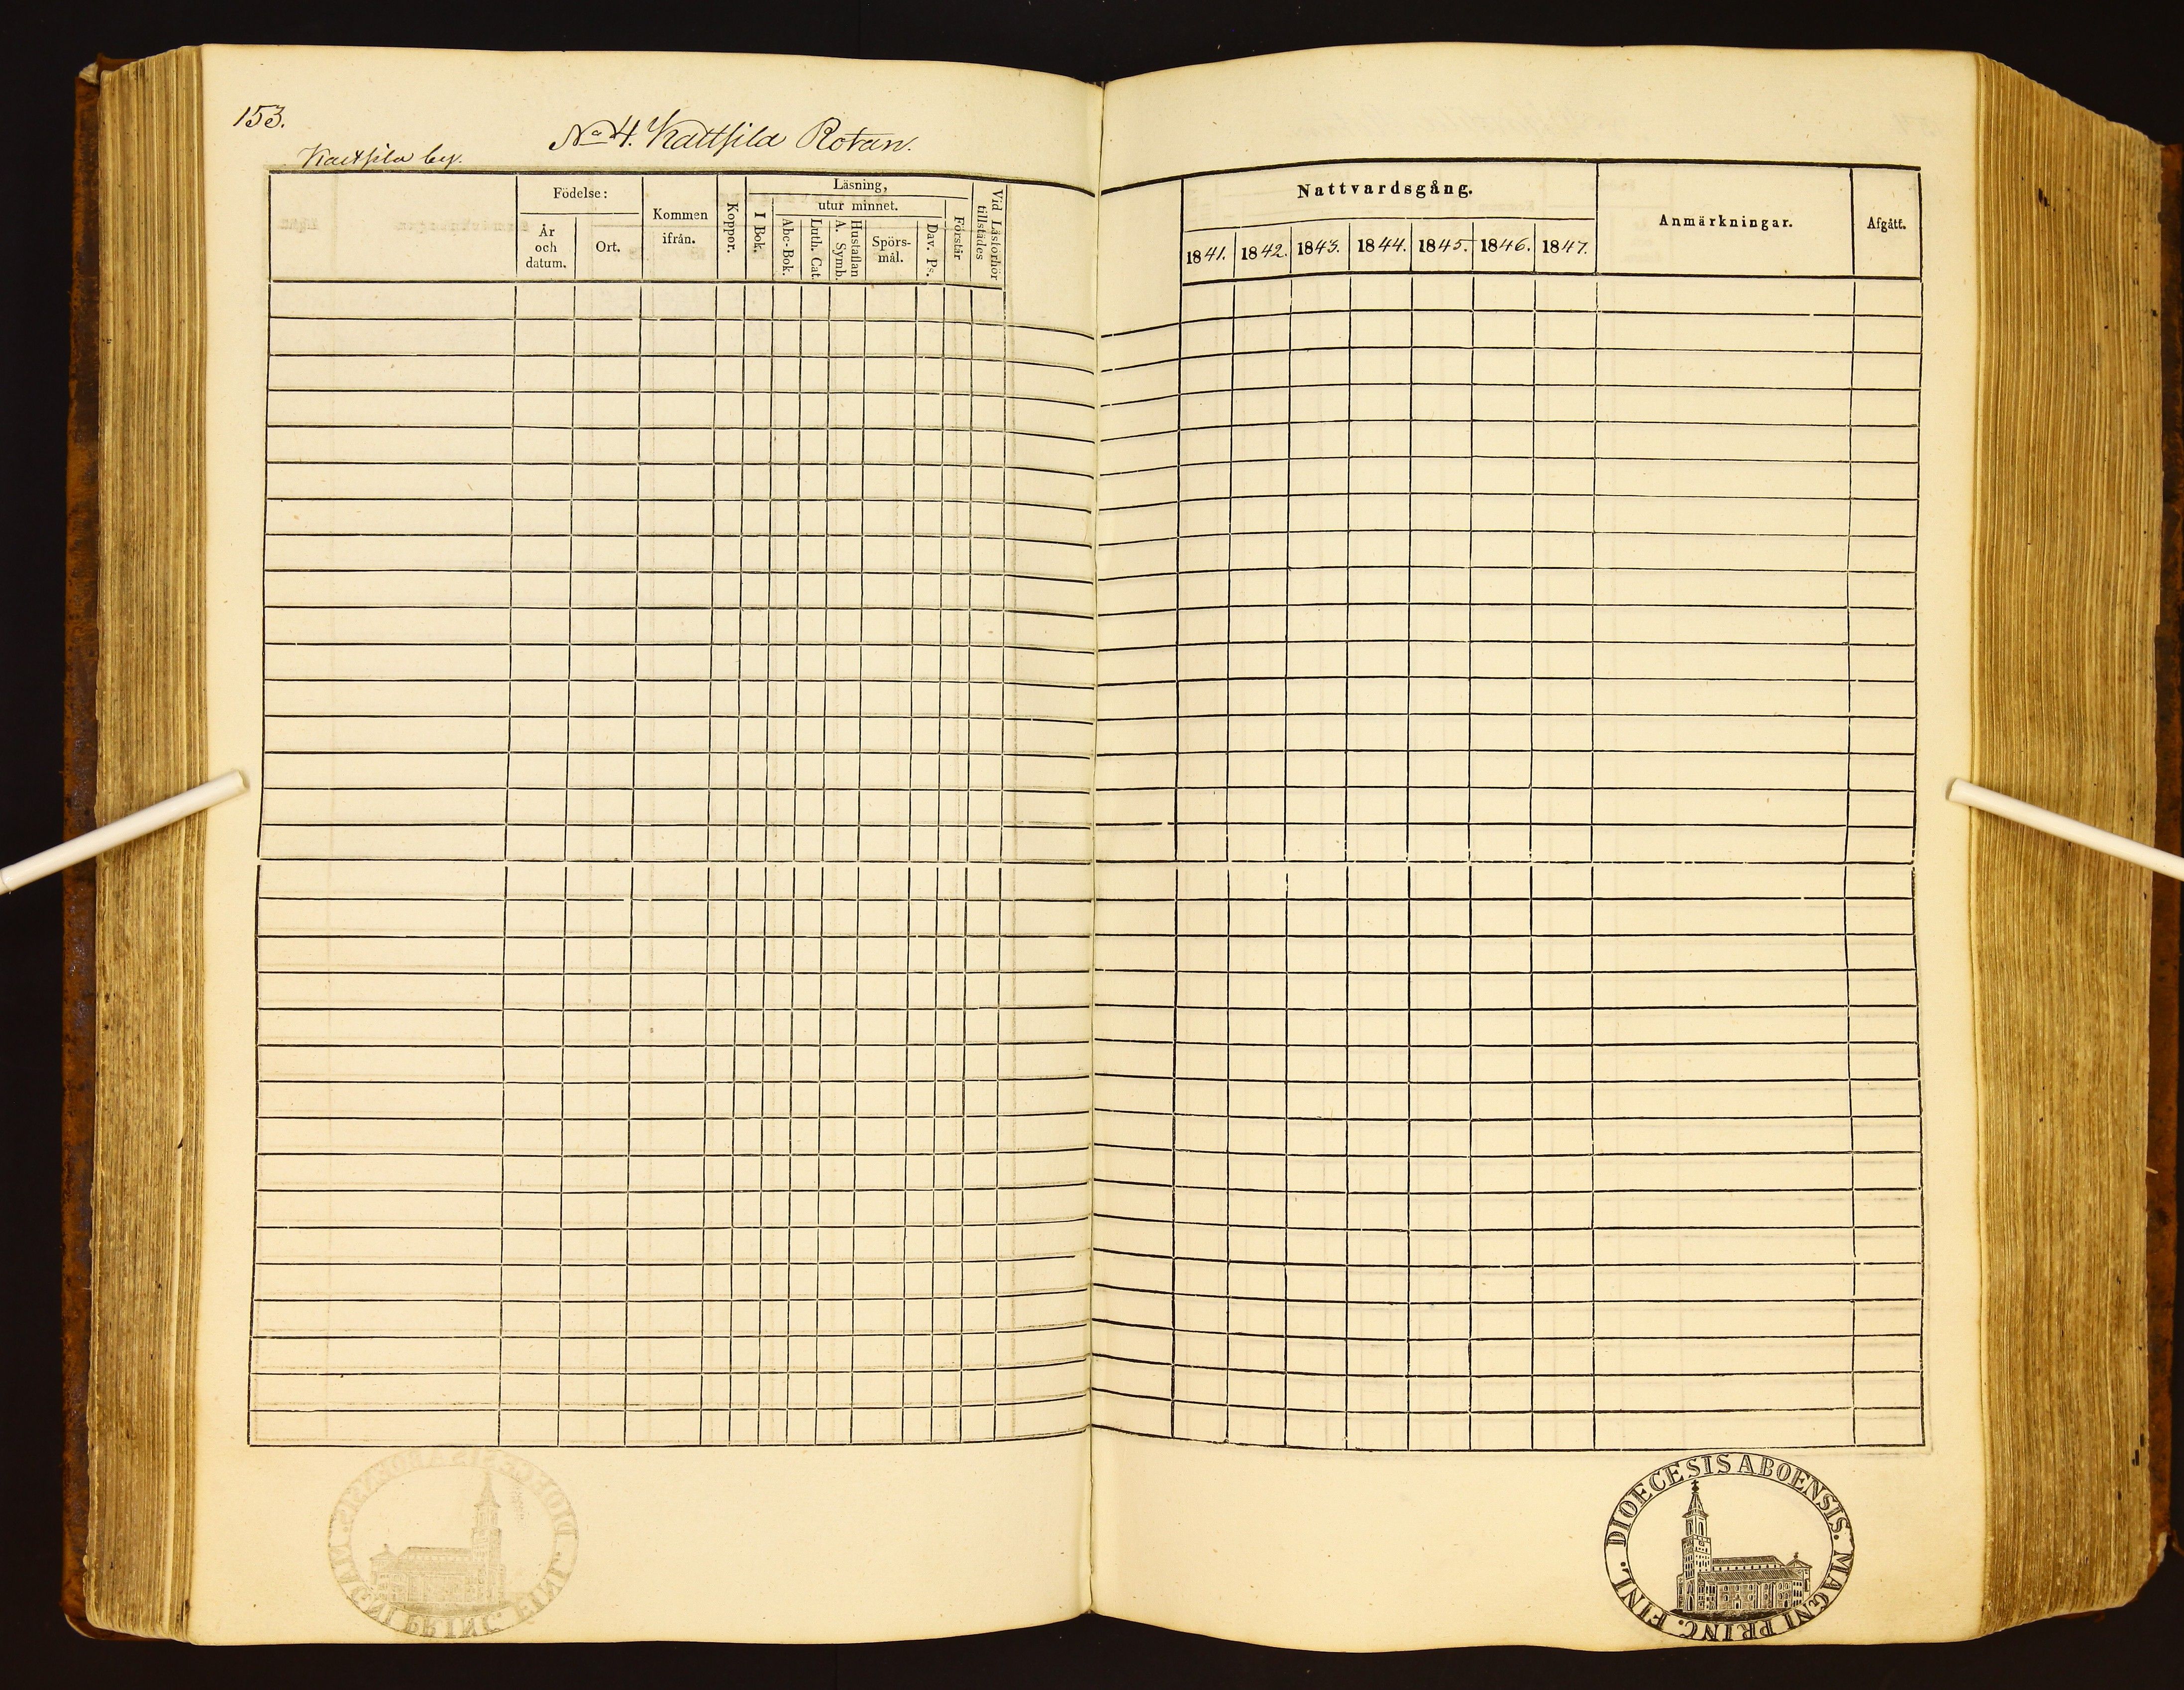 153.
No 4. Kattsila Rotan.
Kattsila by.
Födelse:
År och datum.
Ort.
Kommen ifrån.
Koppor.
Läsning,
I Bok.
utur minnet.
Abc-Bok.
Luth. Cat.
Hustaflan
A. Symb.
Spörs-
mål.
Dav. Ps.
Förstår
Vid Läsförhör
tillstädes
Nattvardsgång.
1841. 1842. 1843. 1844. 1845. 1846. 1847.
Anmärkningar.
Afgått.
DIOECESIS ABOENSIS. MAGNI PRINC. FINL.